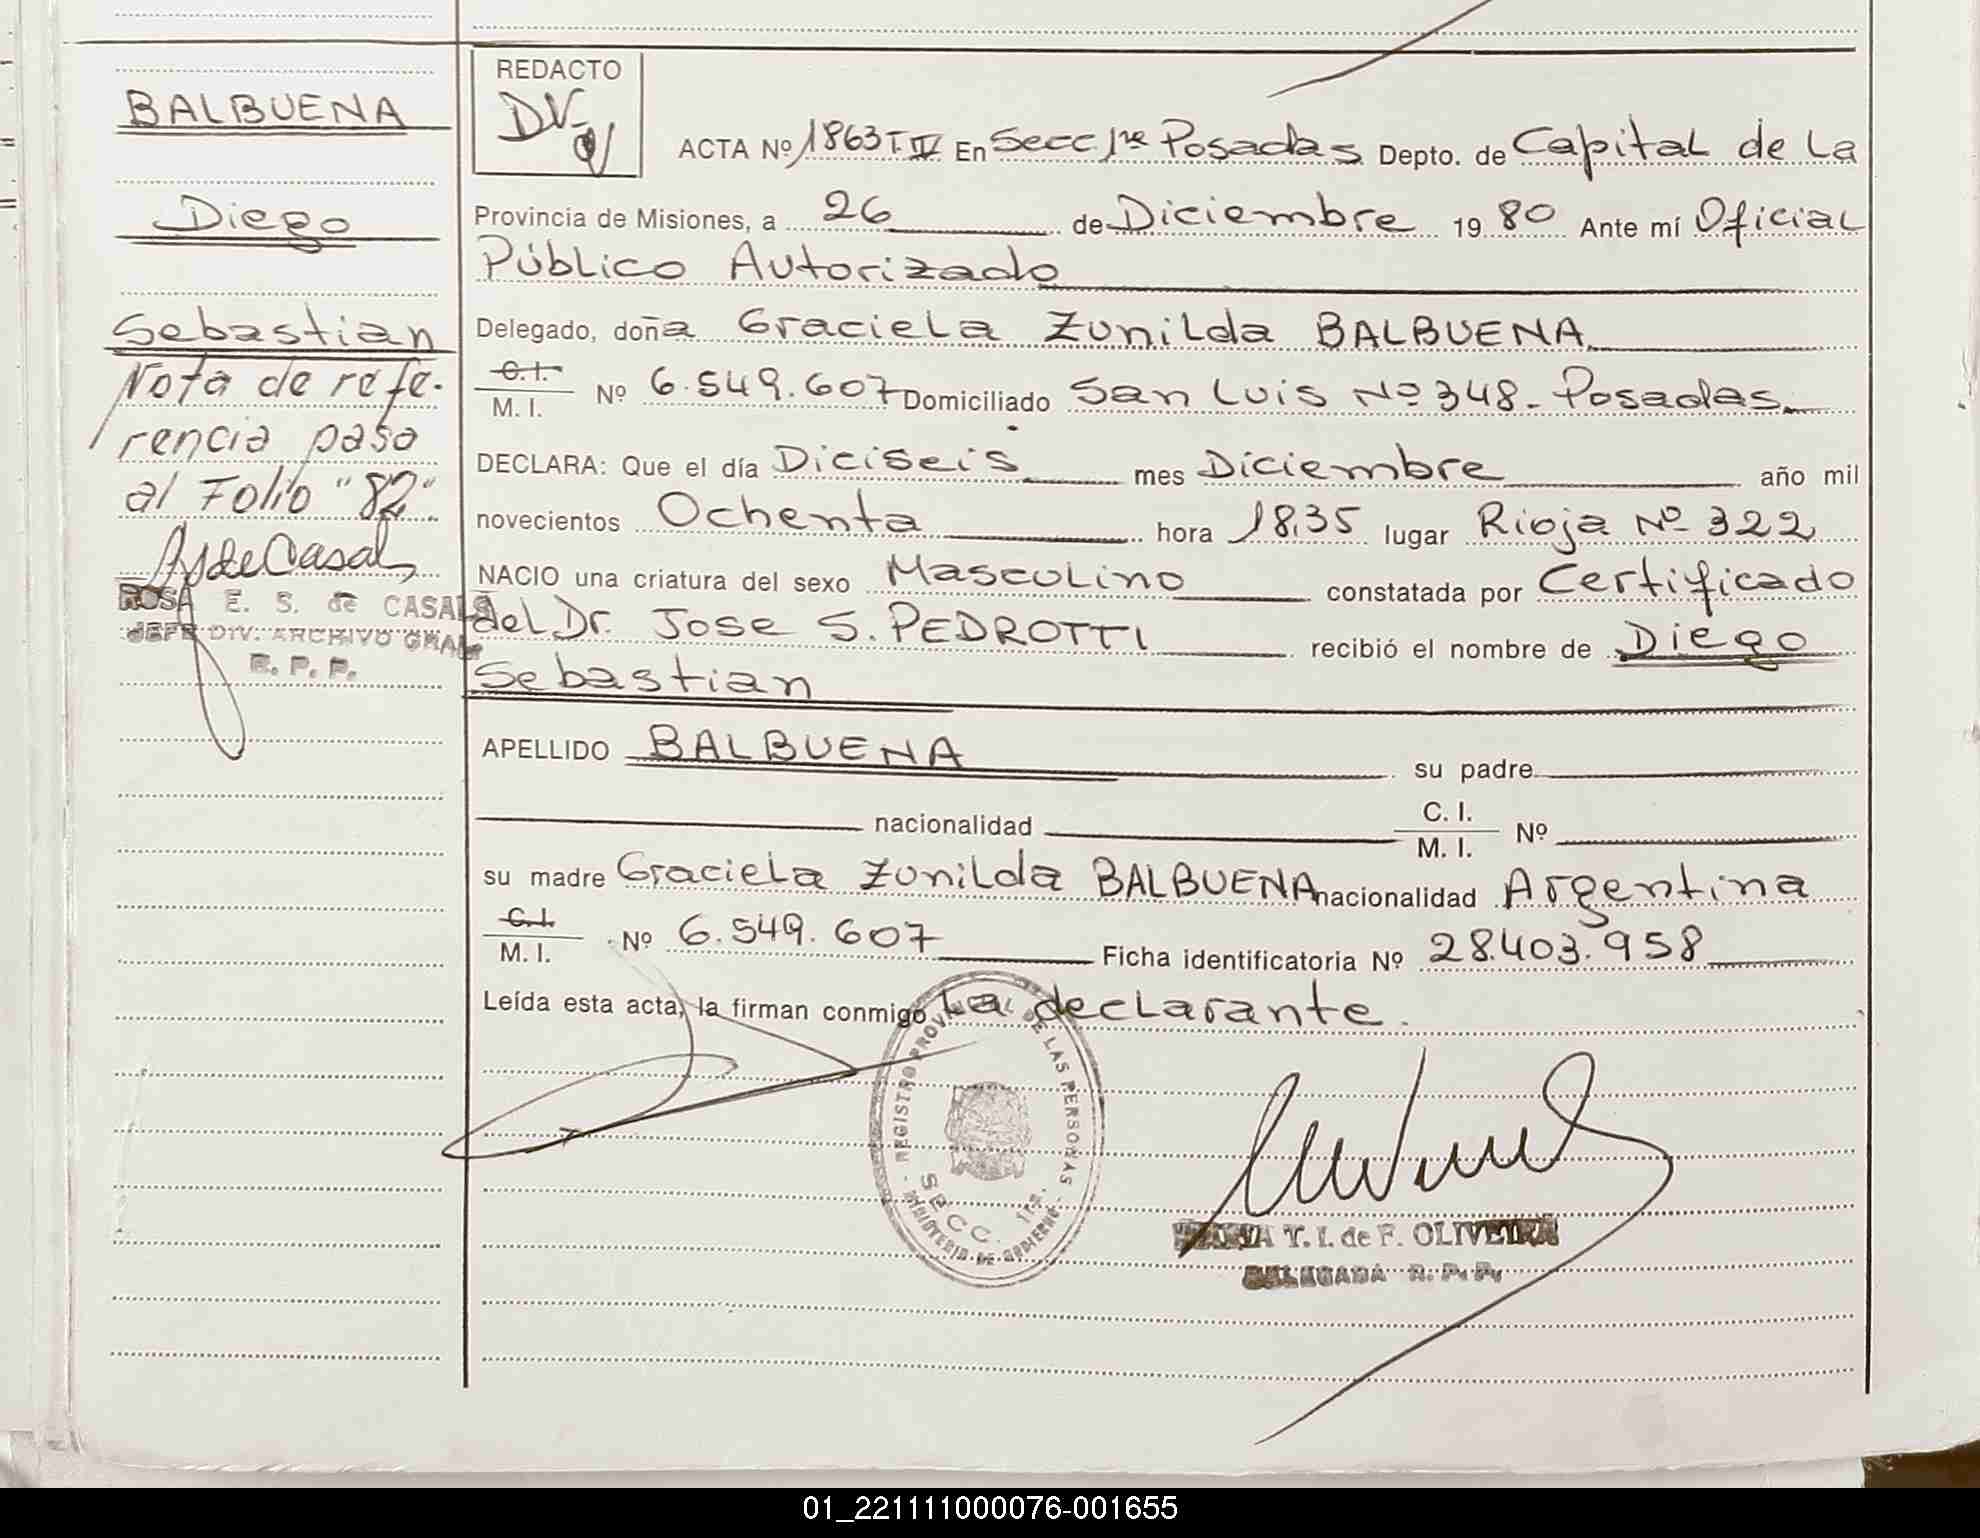 BALBUENA
Diego
Sebastian
Nota de refe-
rencia pasa
al Folio "82"
ROSA E. S. de CASALS
JEFE DIV. ARCHIVO GRAL
R. P. P.
REDACTO
ACTA Nº 1863 T. IV En Secc 1ra Posadas Depto. de Capital de La
Provincia de Misiones, a 26 de Diciembre 19 80 Ante mí Oficial
Público Autorizado
Delegado, doña Graciela Zunilda BALBUENA
C. I.
M. I. Nº 6.549.607 Domiciliado San Luis Nº 348- Posadas
DECLARA: Que el día Diciseis mes Diciembre año mil
novecientos Ochenta hora 18,35 lugar Rioja Nº 322
NACIO una criatura del sexo Masculino constatada por Certificado
del Dr. Jose S. PEDROTTI recibió el nombre de Diego
Sebastian
APELLIDO BALBUENA su padre
nacionalidad C. I.
M. I. Nº
su madre Graciela Zunilda BALBUENA nacionalidad Argentina
C. I.
M. I. Nº 6.549.607 Ficha identificatoria Nº 28.403.958
Leída esta acta, la firman conmigo La declarante.
REGISTRO PROVINCIAL DE LAS PERSONAS
SECC. 1ra.
- MINISTERIO DE GOBIERNO -
MARIA T. I. de F. OLIVEIRA
DELEGADA R. P. P.
01_221111000076-001655